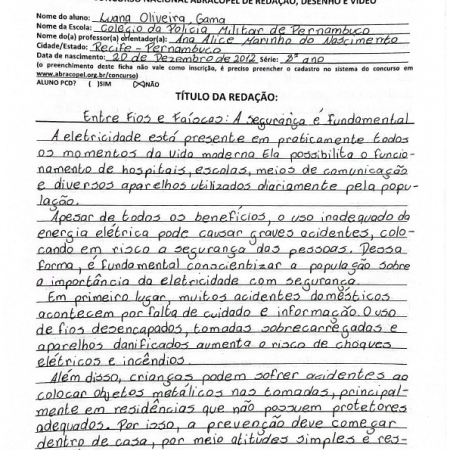 CONCURSO NACIONAL ABRACOPEL DE REDAÇÃO, DESENHO E VÍDEO
Nome do aluno: Luana Oliveira Gama
Nome da Escola: Colégio da Polícia Militar de Pernambuco
Nome do(a) professor(a) orientador(a): Ana Alice Marinho do Nascimento
Cidade/Estado: Recife - Pernambuco
Data de nascimento: 20 de Dezembro de 2012 Série: 8º ano
(o preenchimento deste ficha não vale como inscrição, é preciso preencher o cadastro no sistema do concurso em
www.abracopel.org.br/concurso)
ALUNO PCD? ( )SIM (X)NÃO
TÍTULO DA REDAÇÃO:
Entre Fios e Faíscas: A segurança é fundamental
A eletricidade está presente em praticamente todos
os momentos da vida moderna Ela possibilita o funcio-
namento de hospitais, escolas, meios de comunicação
e diversos aparelhos utilizados diariamente pela popu-
lação.
Apesar de todos os benefícios, o uso inadequado da
energia elétrica pode causar graves acidentes, colo-
cando em risco a segurança das pessoas. Dessa
forma, é fundamental conscientizar a população sobre
a importância da eletricidade com segurança.
Em primeiro lugar, muitos acidentes domésticos
acontecem por falta de cuidado e informação. O uso
de fios desencapados, tomadas sobrecarregadas e
aparelhos danificados aumenta o risco de choques
elétricos e incêndios.
Além disso, crianças podem sofrer acidentes ao
colocar objetos metálicos nas tomadas, principal-
mente em residências que não possuem protetores
adequados. Por isso, a prevenção deve começar
dentro de casa, por meio atitudes simples e res-